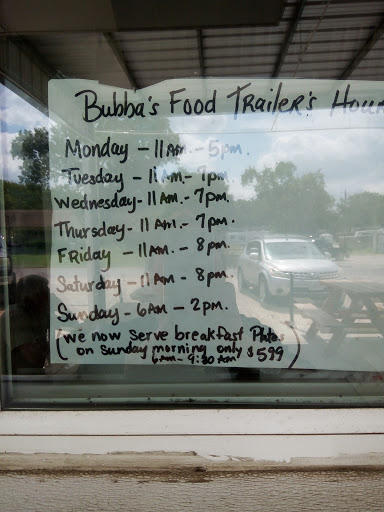 Bubba's Food Trailer's Hour
Monday - 11 Am. - 5 pm.
Tuesday - 11 Am - 7 pm.
Wednesday - 11 Am. - 7 pm.
Thursday - 11 Am. - 7 pm.
Friday - 11 Am - 8 pm.
Saturday - 11 Am - 8 pm.
Sunday - 6 Am - 2 pm.
(we now serve breakfast Plates
on Sunday morning only $5.99)
6 Am - 9:30 Am